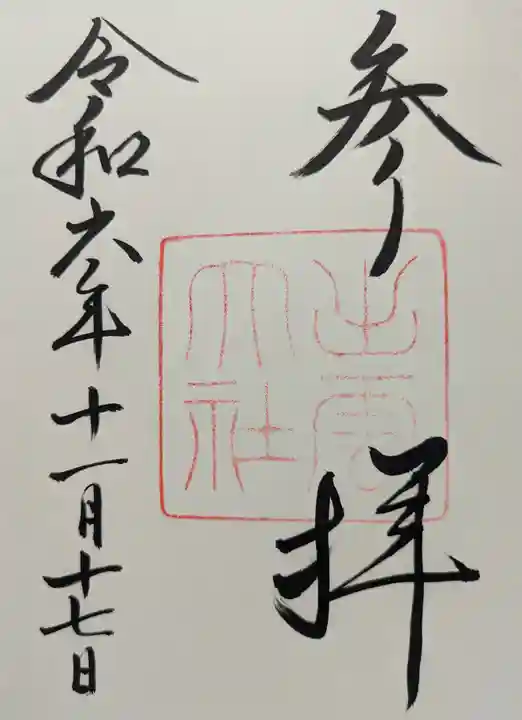 参拝
出雲
大社
令和六年十一月十七日